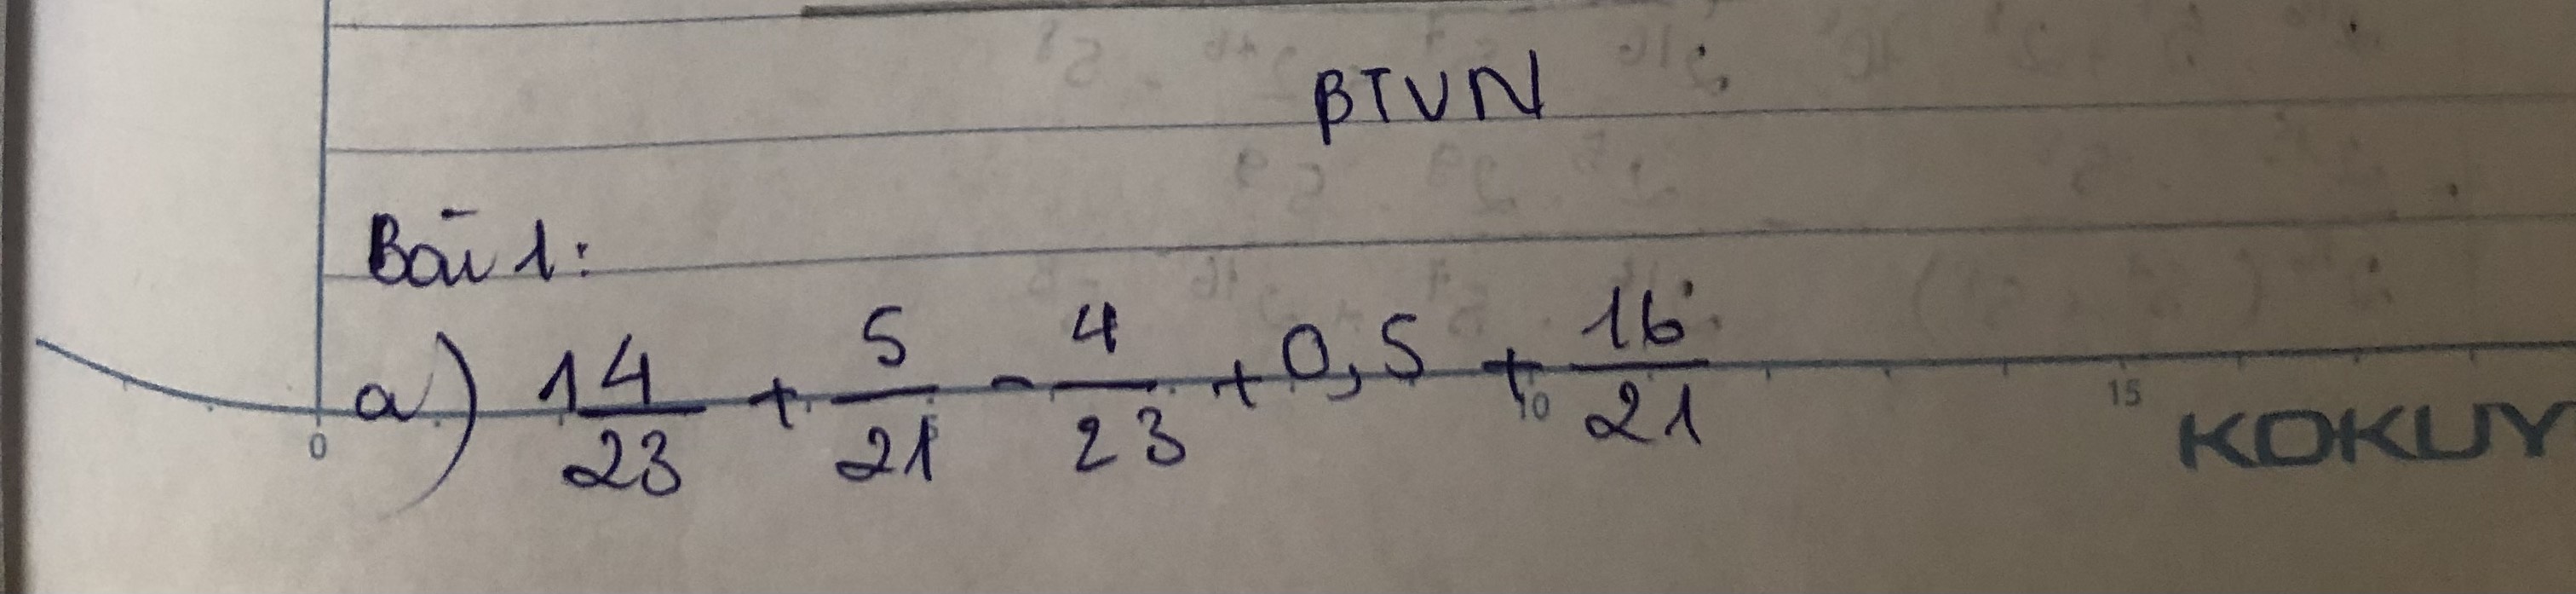 BTVN
Bài 1:
a) 1 4/23 + 5/21 - 4/23 + 0,5 + 16/21
0 10 15
KOKUY